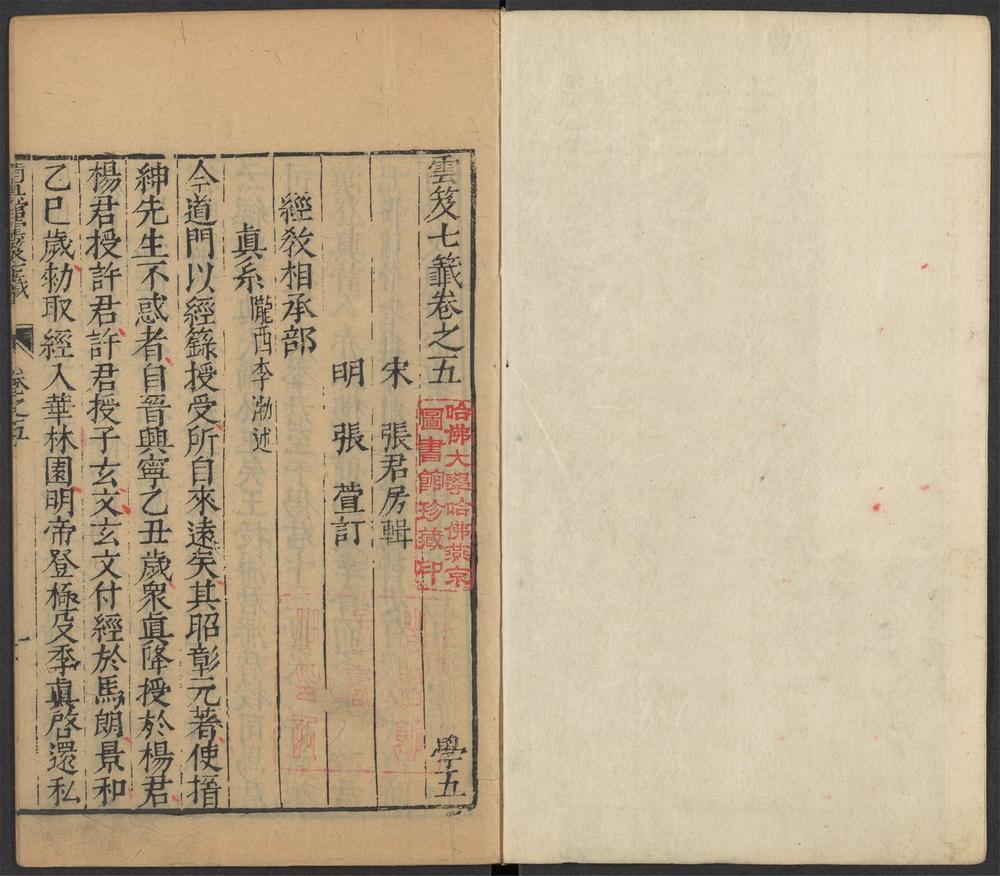 雲笈七籤卷之五
學五
宋 張君房輯
明 張 萱訂
經敎相承部
眞系隴西李渤述
今道門以經籙授受所自來遠矣其昭彰元著使搢
紳先生不惑者自晉興寧乙丑歲衆眞降授於楊君
楊君授許君許君授子玄文玄文付經於馬朗景和
乙巳歲勑取經入華林園明帝登極殳季眞啓還私
卷之五
哈佛大學哈佛燕京
圖書館珍藏印